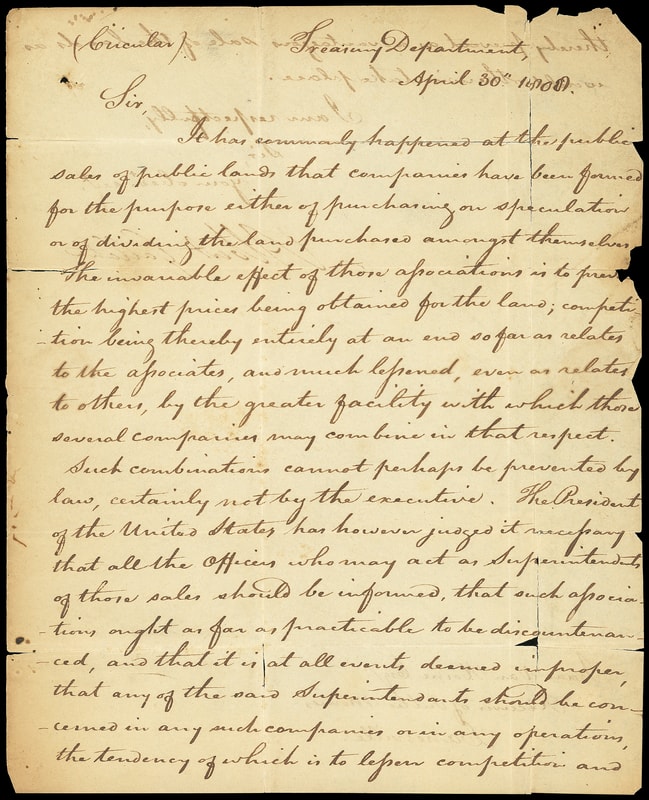 (Circular) Treasury Department,
April 30th 1808.
Sir,
It has commonly happened at the public
sales of public lands that companies have been formed
for the purpose either of purchasing on speculation
or of dividing the land purchased amongst themselves.
The invariable effect of those associations is to prev
the highest prices being obtained for the land; competi
-tion being thereby entirely at an end so far as relates
to the associates, and much lessened, even as relates
to others, by the greater facility with which those
several companies may combine in that respect.
Such combinations cannot perhaps be prevented by
law, certainly not by the executive. The President
of the United States, has however judged it necessary
that all the Officers who may act as Superintendents
of those sales should be informed, that such associa-
-tions ought as far as practicable to be discountenan-
-ced, and that it is at all events deemed improper,
that any of the said Superintendants should be con-
-cerned in any such companies or in any operations,
the tendency of which is to lessen competition and